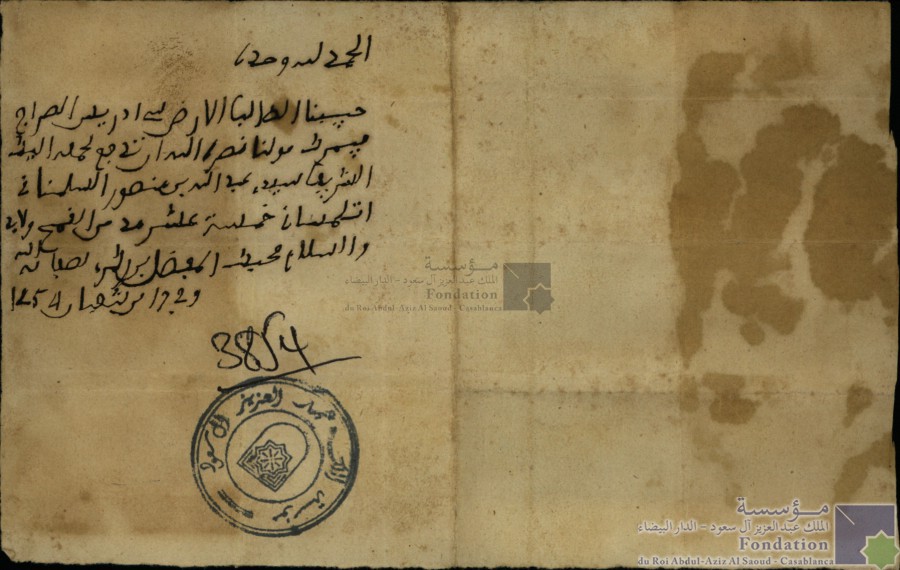 الحمد لله وحده
حبيبنا الطالب الارضى سي ادريس السراج
مولنا نصره الله ان تدفع لحامله
الشريف سيدي عبد الله بن منصور السلمناني
خمسة عشر مد من القمح ولابد
والسلام محبك المفضل لطف الله به
في 17 من شعبان 1254
3854
مؤسسة الملك عبد العزيز آل سعود
مؤسسة
الملك عبد العزيز آل سعود - الدار البيضاء
Fondation
du Roi Abdul-Aziz Al Saoud - Casablanca
مؤسسة
الملك عبد العزيز آل سعود - الدار البيضاء
Fondation
du Roi Abdul-Aziz Al Saoud - Casablanca